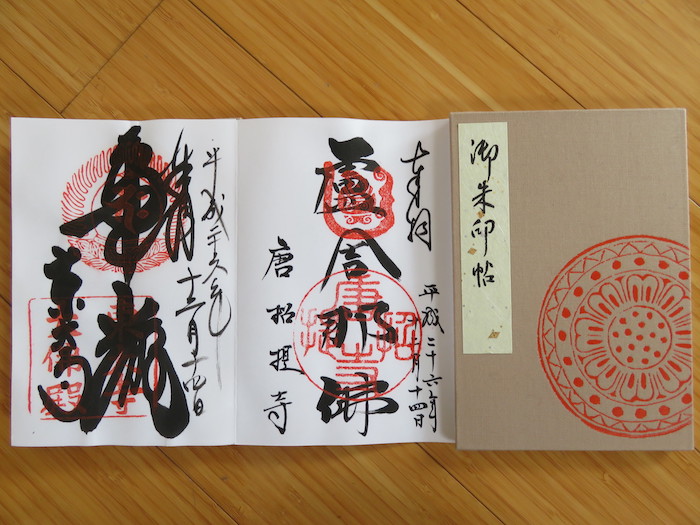 御朱印帖
奉拝
平成二十六年
月十四日
盧舎那佛
唐招提寺
平成二十六年
十二月十四日
華厳
東大寺